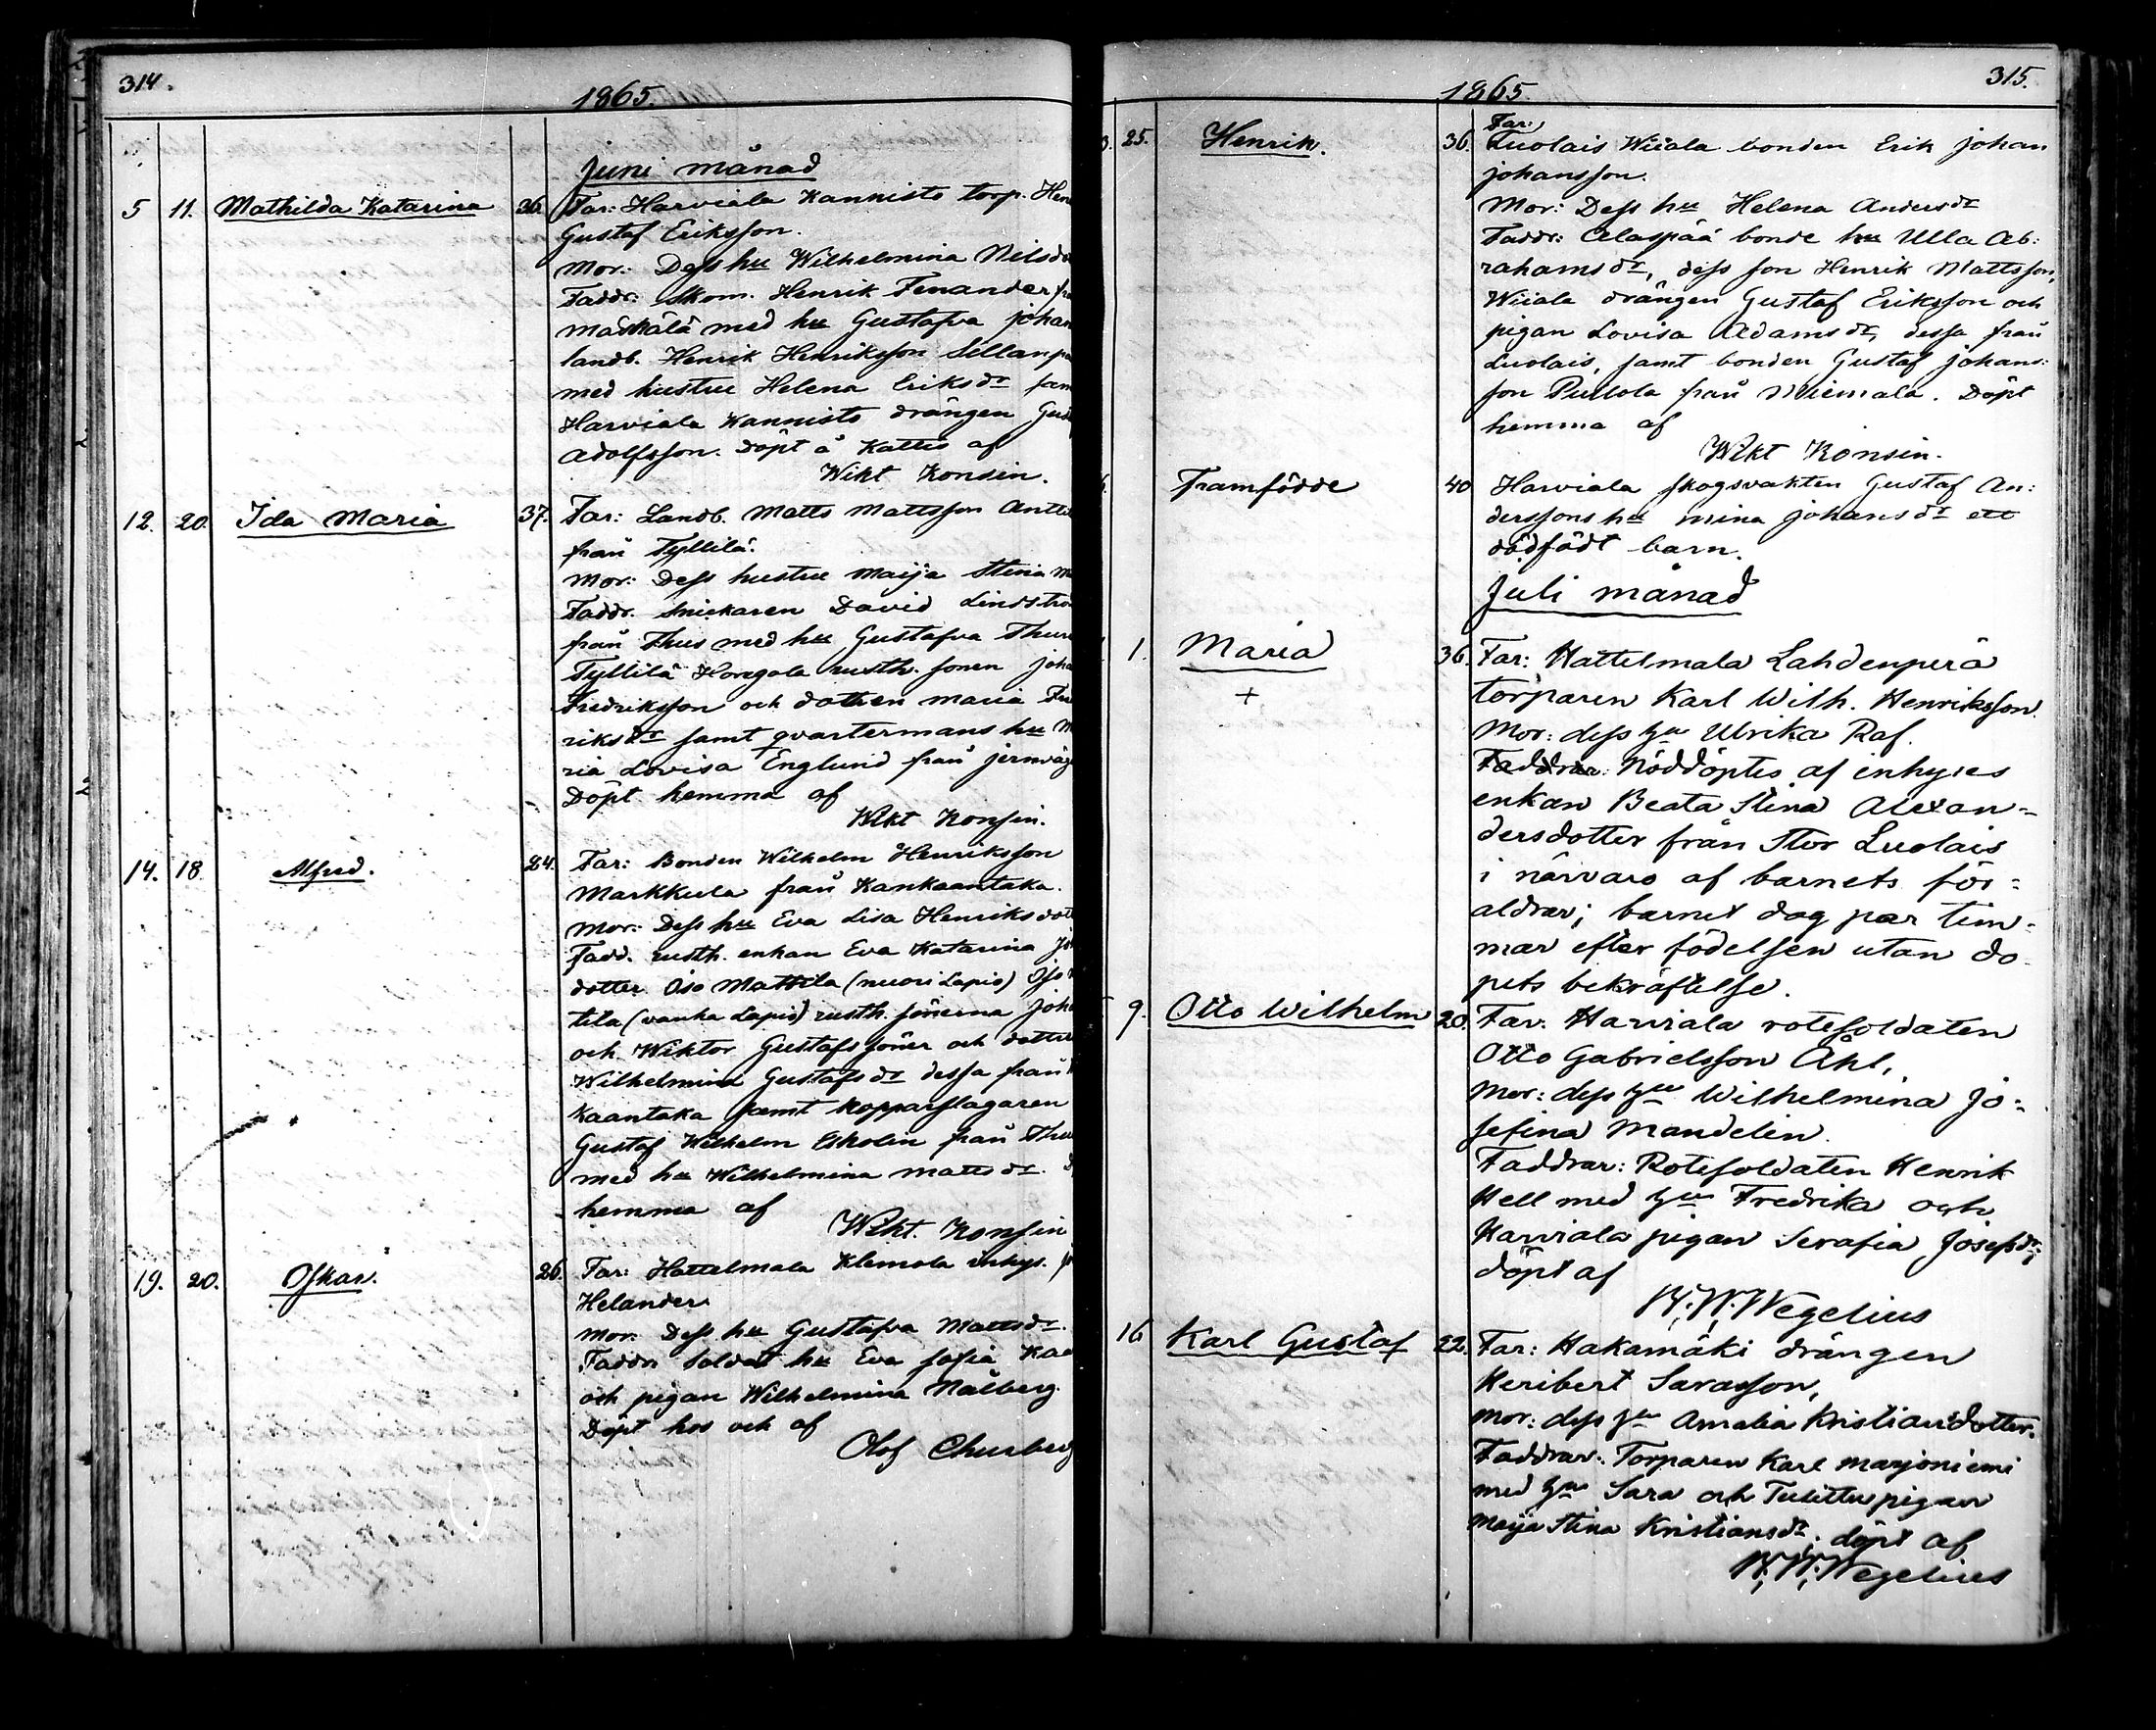 314.
1865.
Juni månad
5 11. Mathilda Katarina 36. Far: Harviala Kannisto torp. Hen
Gustaf Eriksson.
Mor: Dess hu Wilhelmina Nilsd
Faddr: Skom. Henrik Fenander fr
Mäskälä med hu Gustafva Johan
landb. Henrik Henriksson Sellanp
med hustru Helena Eriksdr sam
Harviala Kannisto drängen Gus
Adolfsson. Döpt å Kattis af
Wikt Konsin.
12. 20. Ida Maria 37. Far: Landb. Matts Mattsson Antti
från Tyllilä.
Mor: Dess hustru Maija Stina M
Faddr. Snickaren David Lindströ
från Thus med hu Gustafva Thur
Tyllilä Hongola rusth. sonen Joha
Fredriksson och dottren Maria Fre
riksdr samt qvartermans hu M
ria Lovisa Englund från jernväg
Döpt hemma af
Wikt Konsin.
14. 18 Alfred. 24. Far: Bonden Wilhelm Henriksson
Markkula från Kankaantaka.
Mor: Dess hu Eva Lisa Henriksdott
Fadd. rusth. enkan Eva Katarina Jo
dotter Oso Mattila (nuori Lapis) Oso
tila (vanha Lapis) rusth. sönerna Joh
och Wiktor Gustafssöner och dottre
Wilhelmina Gustafsdr dessa från
kaantaka samt kopparslagaren
Gustaf Wilhelm Eskolin från Thu
med hu Wilhelmina Mattsdr. D
hemma af
Wikt. Konsin
19. 20. Oskar. 26. Far: Hattelmala Klemola inhys.
Helander
Mor: Dess hu Gustafva Mattsdr.
Faddr: Soldat hu Eva Sofia
och pigan Wilhelmina Målberg.
Döpt hos och af
Olof Churberg
315.
1865.
25. Henrik. 36. Far:
Luolais Wiiala bonden Erik Johan
Johansson.
Mor: Dess hu Helena Andersdr
Faddr: Alaspää bonde hu Ulla Ab:
rahamsdr, dess son Henrik Mattsson,
Wiiala drängen Gustaf Eriksson och
pigan Lovisa Adamsdr, dessa från
Luolais, samt bonden Gustaf Johans:
son Pullola från Niemala. Döpt
hemma af
Wikt Konsin.
Framfödde 40 Harviala skogsvakten Gustaf An:
derssons hu Mina Johansdr ett
dödfödt barn.
Juli månad
1. Maria 36. Far: Hattelmala Lahdenperä
+ torparen Karl Wilh. Henriksson.
Mor: dess hu Ulrika Raf.
Faddrar: Nöddöptes af inhyses
enkan Beata Stina Alexan-
dersdotter från Stor Luolais
i närvaro af barnets för:
äldrar; barnet dog par tim-
mar efter födelsen utan do
pets bekräftelse.
9. Otto Wilhelm 20. Far: Harviala rotesoldaten
Otto Gabrielsson Åhl,
Mor: dess hu Wilhelmina Jo:
sefina Mandelin.
Faddrar: Rotesoldaten Henrik
Hell med hu Fredrika och
Harviala pigan Serafia Josefsdr;
döpt af
K. W. Wegelius
16 Karl Gustaf 22. Far: Hakamäki drängen
Heribert Sarasson,
Mor: dess hu Amalia Kristiansdotter.
Faddrar: Torparen Karl Marjoniemi
med hu Sara och Tulittu pigan
Maija Stina Kristiansdr; döpt af
K. W. Wegelius